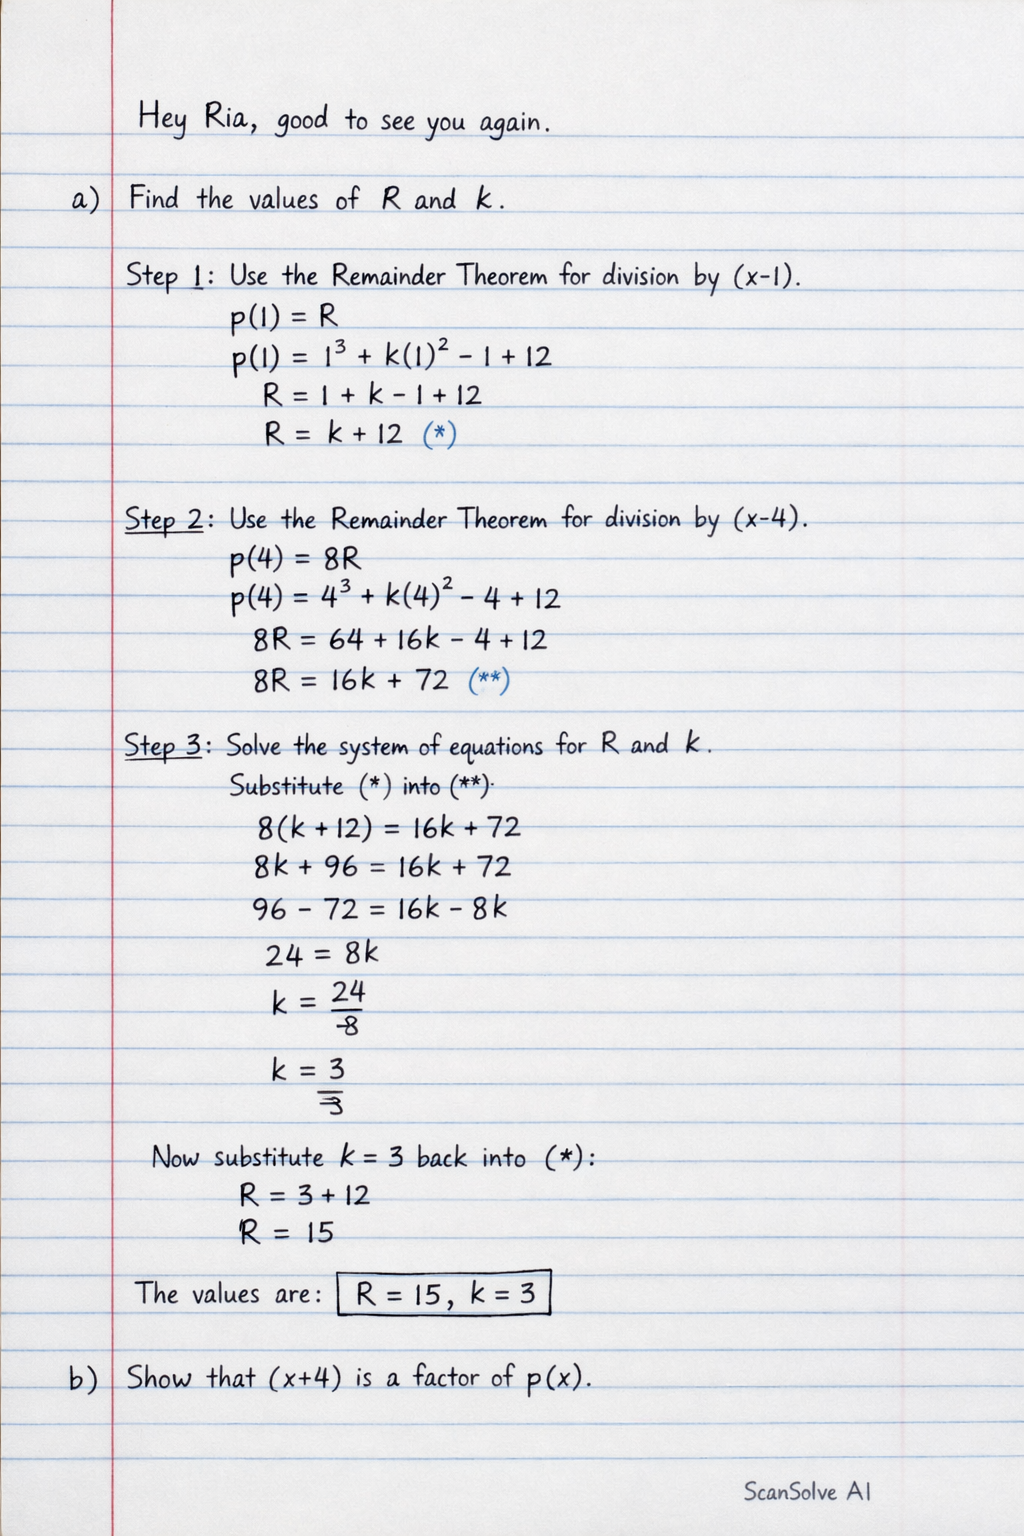 Hey Ria, good to see you again.
a) Find the values of R and k.
Step 1: Use the Remainder Theorem for division by (x-1).
p(1) = R
p(1) = 1³ + k(1)² - 1 + 12
R = 1 + k - 1 + 12
R = k + 12 (*)
Step 2: Use the Remainder Theorem for division by (x-4).
p(4) = 8R
p(4) = 4³ + k(4)² - 4 + 12
8R = 64 + 16k - 4 + 12
8R = 16k + 72 (**)
Step 3: Solve the system of equations for R and k.
Substitute (*) into (**).
8(k + 12) = 16k + 72
8k + 96 = 16k + 72
96 - 72 = 16k - 8k
24 = 8k
k = 24
8
k = 3
3
Now substitute k = 3 back into (*):
R = 3 + 12
R = 15
The values are: R = 15, k = 3
b) Show that (x+4) is a factor of p(x).
ScanSolve AI